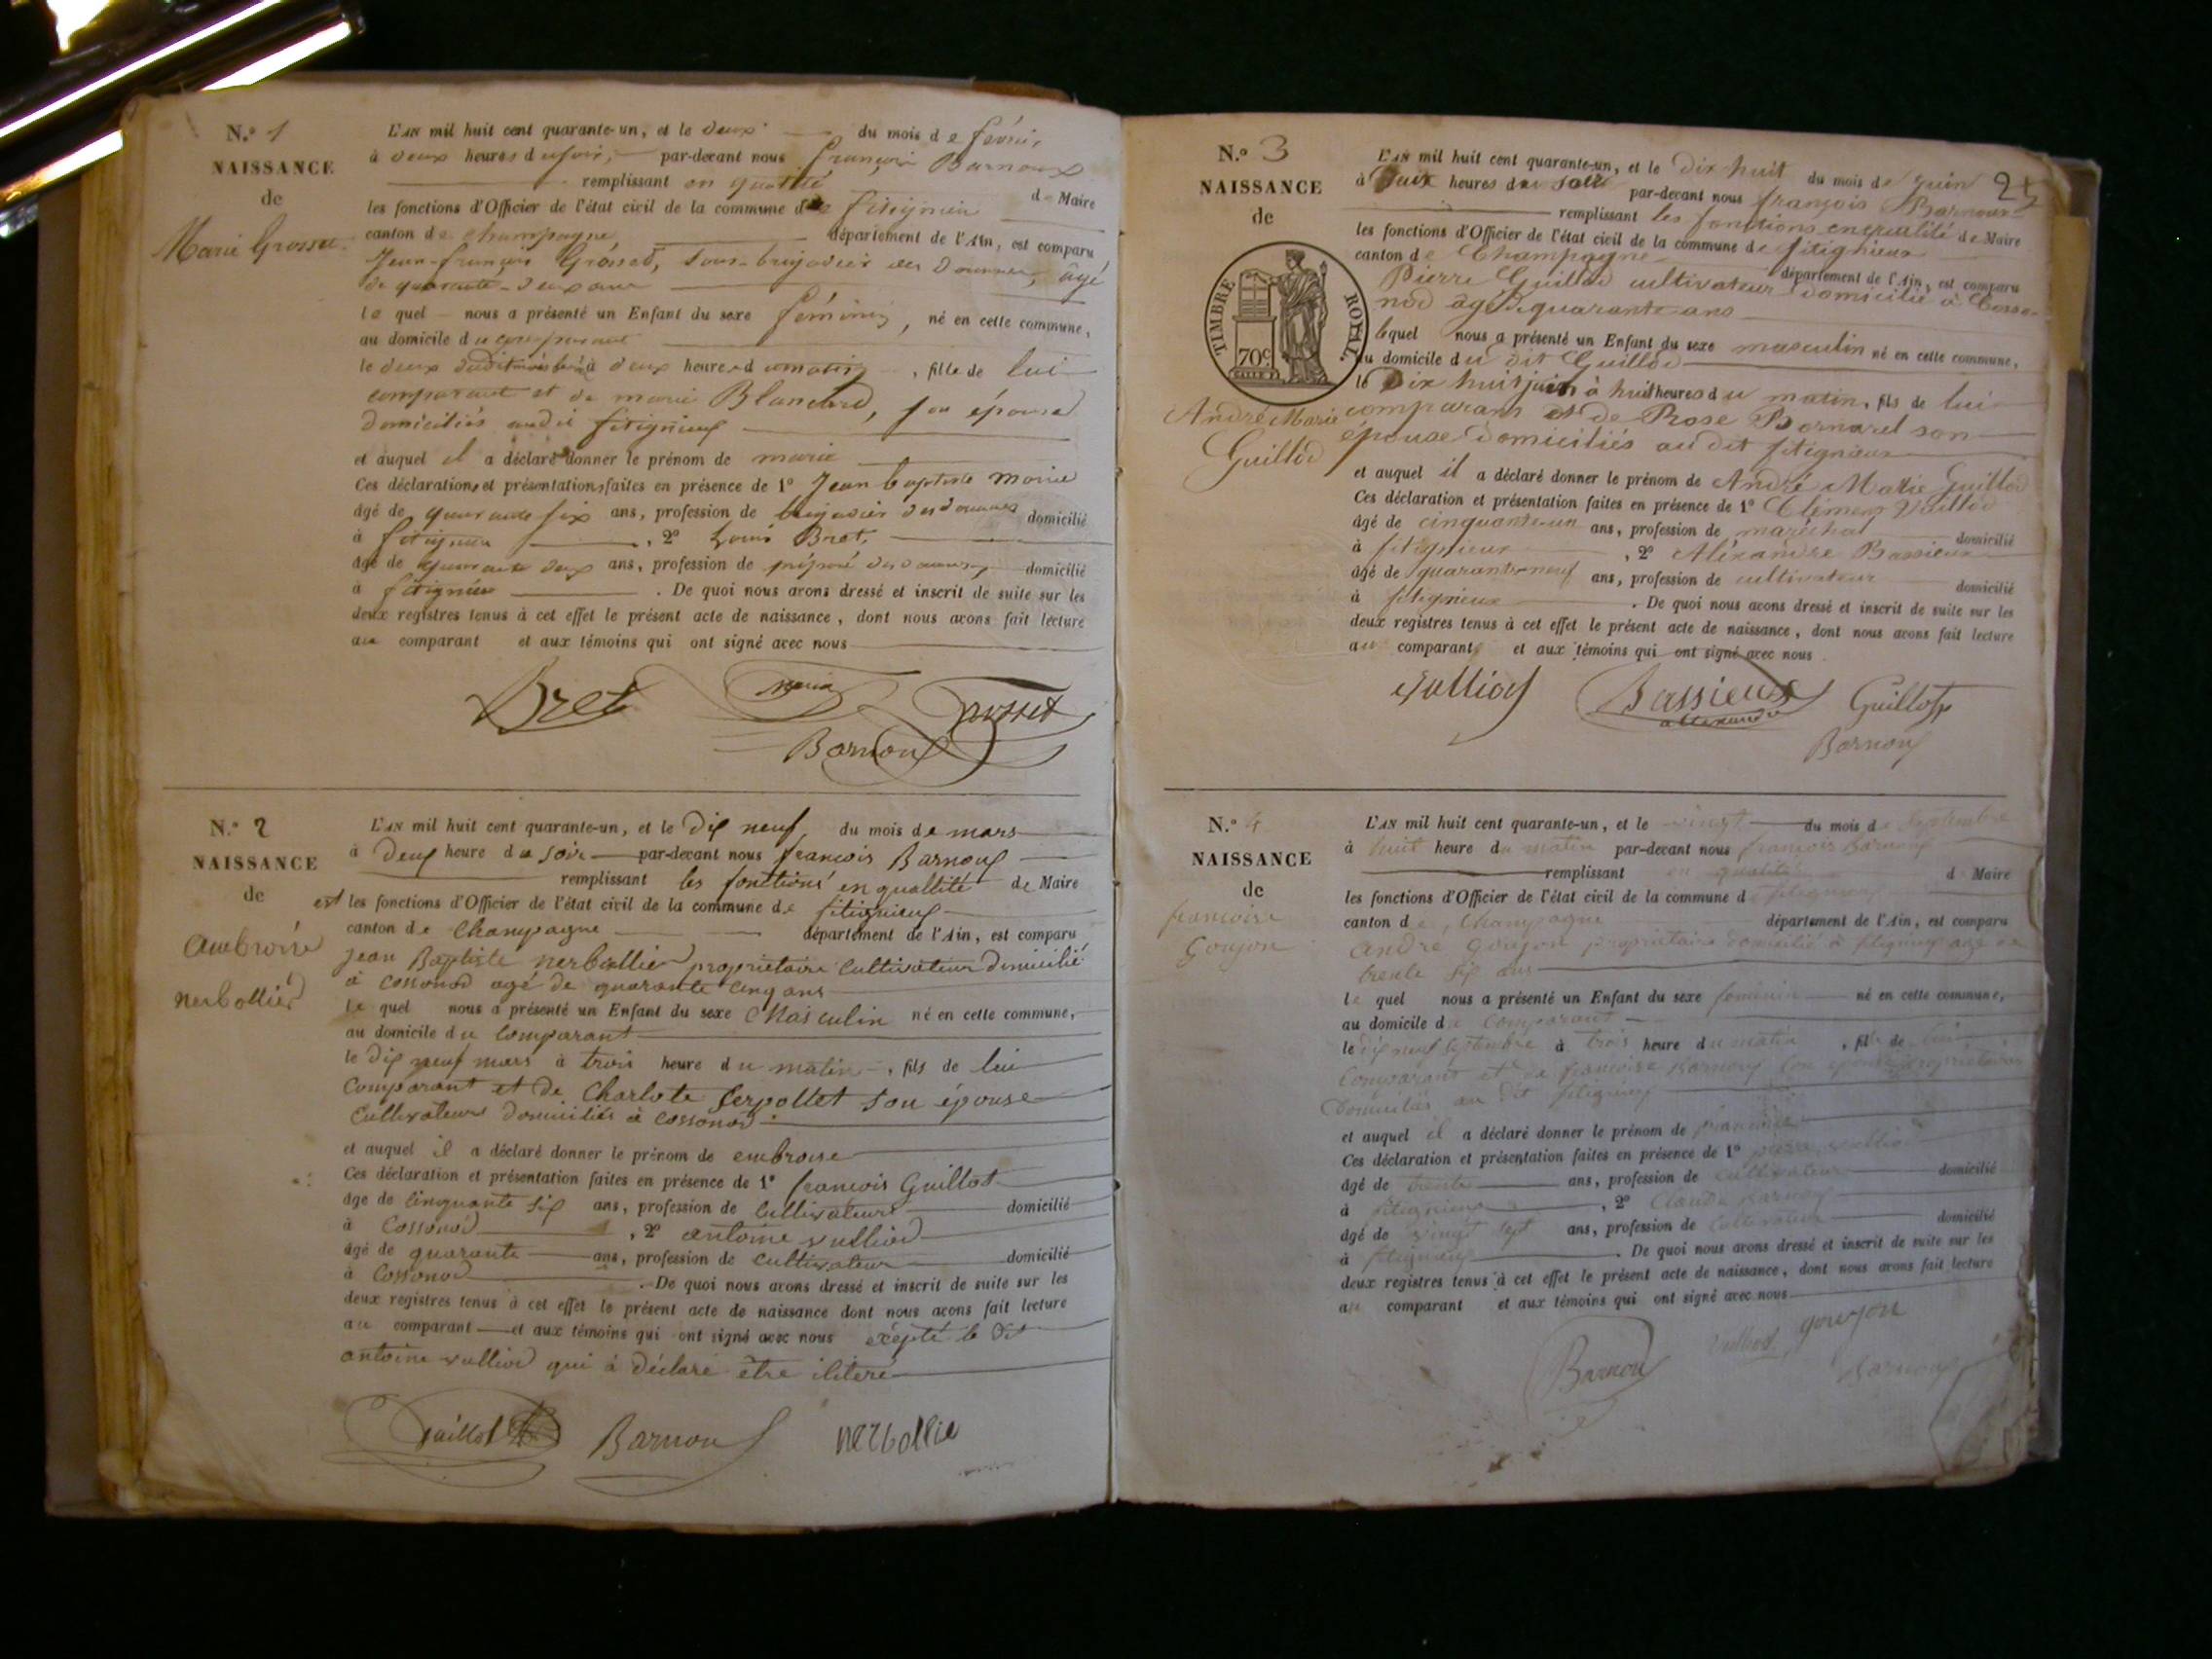 N.° 1
NAISSANCE
de
Marie Grosset
L'AN mil huit cent quarante-un, et le deux du mois de février
à deux heures du soir, par-devant nous françois Barnoux
remplissant en qualité de Maire
les fonctions d'Officier de l'état civil de la commune de fitignieu
canton de champagne département de l'Ain, est comparu
Jean-françois Grosset, sous-brigadier des Douanes, âgé
de quarante-deux ans
le quel nous a présenté un Enfant du sexe féminin, né en cette commune,
au domicile du comparant
le deux dudit mois à deux heures du matin, fille de lui
comparant et de marie Blanchard, son épouse
domiciliés audit fitignieux
et auquel il a déclaré donner le prénom de marie
Ces déclarations et présentations faites en présence de 1° Jean baptiste Morin
âgé de quarante six ans, profession de brigadier des douanes domicilié
à fitignieu, 2° Louis Bret,
âgé de quarante deux ans, profession de préposé des douanes domicilié
à fitignieu. De quoi nous avons dressé et inscrit de suite sur les
deux registres tenus à cet effet le présent acte de naissance, dont nous avons fait lecture
au comparant et aux témoins qui ont signé avec nous
Bret Morin Grosset
Barnoux
N.° 2
NAISSANCE
de
Ambroise
nerbollier
L'AN mil huit cent quarante-un, et le dix neuf, du mois de mars
à deux heure du soir par-devant nous françois Barnoux
remplissant les fonctions en quallité de Maire
est les fonctions d'Officier de l'état civil de la commune de fitignieux
canton de Champagne département de l'Ain, est comparu
jean Baptiste nerbollier propriétaire cultivateur domicilié
à cossonod agé de quarante cinq ans
le quel nous a présenté un Enfant du sexe Masculin né en cette commune,
au domicile du comparant
le dix neuf mars à trois heure du matin, fils de lui
comparant et de Charlote Serpollet son épouse
cultivateurs domiciliés à cossonod
et auquel il a déclaré donner le prénom de embroise
Ces déclaration et présentation faites en présence de 1° françois Guillot
âgé de cinquante six ans, profession de cultivateur domicilié
à Cossonod, 2° antoine vulliod
âgé de quarante ans, profession de cultivateur domicilié
à Cossonod. De quoi nous avons dressé et inscrit de suite sur les
deux registres tenus à cet effet le présent acte de naissance dont nous avons fait lecture
au comparant et aux témoins qui ont signé avec nous éxépté le dit
antoine vulliod qui à déclaré être ilitéré
Guillot Barnoux nerbollie
N.° 3
NAISSANCE
de
TIMBRE ROYAL.
70c
André Marie
Guillod
25
L'AN mil huit cent quarante-un, et le Dix huit du mois de juin
à heures du soir par-devant nous françois Barnoux
remplissant les fonctions en qualité de Maire
les fonctions d'Officier de l'état civil de la commune de fitignieux
canton de Champagne département de l'Ain, est comparu
Pierre Guillod cultivateur domicilié à Cosso-
nod âgé de quarante ans
lequel nous a présenté un Enfant du sexe masculin né en cette commune,
au domicile du dit Guillod
le Dix huit juin à huit heures du matin, fils de lui
comparant et de Rose Bornarel son
épouse domiciliés au dit fitignieux
et auquel il a déclaré donner le prénom de André Marie Guillod
Ces déclaration et présentation faites en présence de 1° Clément Vulliod
âgé de cinquante-un ans, profession de maréchal domicilié
à fitignieux, 2° Aléxandre Bassieux
âgé de quarante neuf ans, profession de cultivateur domicilié
à fitignieux. De quoi nous avons dressé et inscrit de suite sur les
deux registres tenus à cet effet le présent acte de naissance, dont nous avons fait lecture
au comparant et aux témoins qui ont signé avec nous
Vulliod Bassieux Guillot
alexandre
Barnoux
N.° 4
NAISSANCE
de
francoise
Goujon
L'AN mil huit cent quarante-un, et le vingt du mois de septembre
à huit heure du matin par-devant nous françois Barnoux
remplissant en qualité d Maire
les fonctions d'Officier de l'état civil de la commune d fitignieux
canton de Champagne département de l'Ain, est comparu
andré goujon propriétaire domicilié à fitignieux agé de
trente six ans
le quel nous a présenté un Enfant du sexe féminin né en cette commune,
au domicile du comparant
le dix neuf septembre à trois heure du matin, fille de lui
comparant et de francoise Barnoux son épouse propriétaires
domiciliés au dit fitignieux
et auquel il a déclaré donner le prénom de francoise
Ces déclaration et présentation faites en présence de 1° pierre vulliod
âgé de trente ans, profession de cultivateur domicilié
à fitignieux, 2° Claude Barnoux
âgé de vingt sept ans, profession de cultivateur domicilié
à fitignieux. De quoi nous avons dressé et inscrit de suite sur les
deux registres tenus à cet effet le présent acte de naissance, dont nous avons fait lecture
au comparant et aux témoins qui ont signé avec nous
Barnou Vulliod goujon
Barnoux